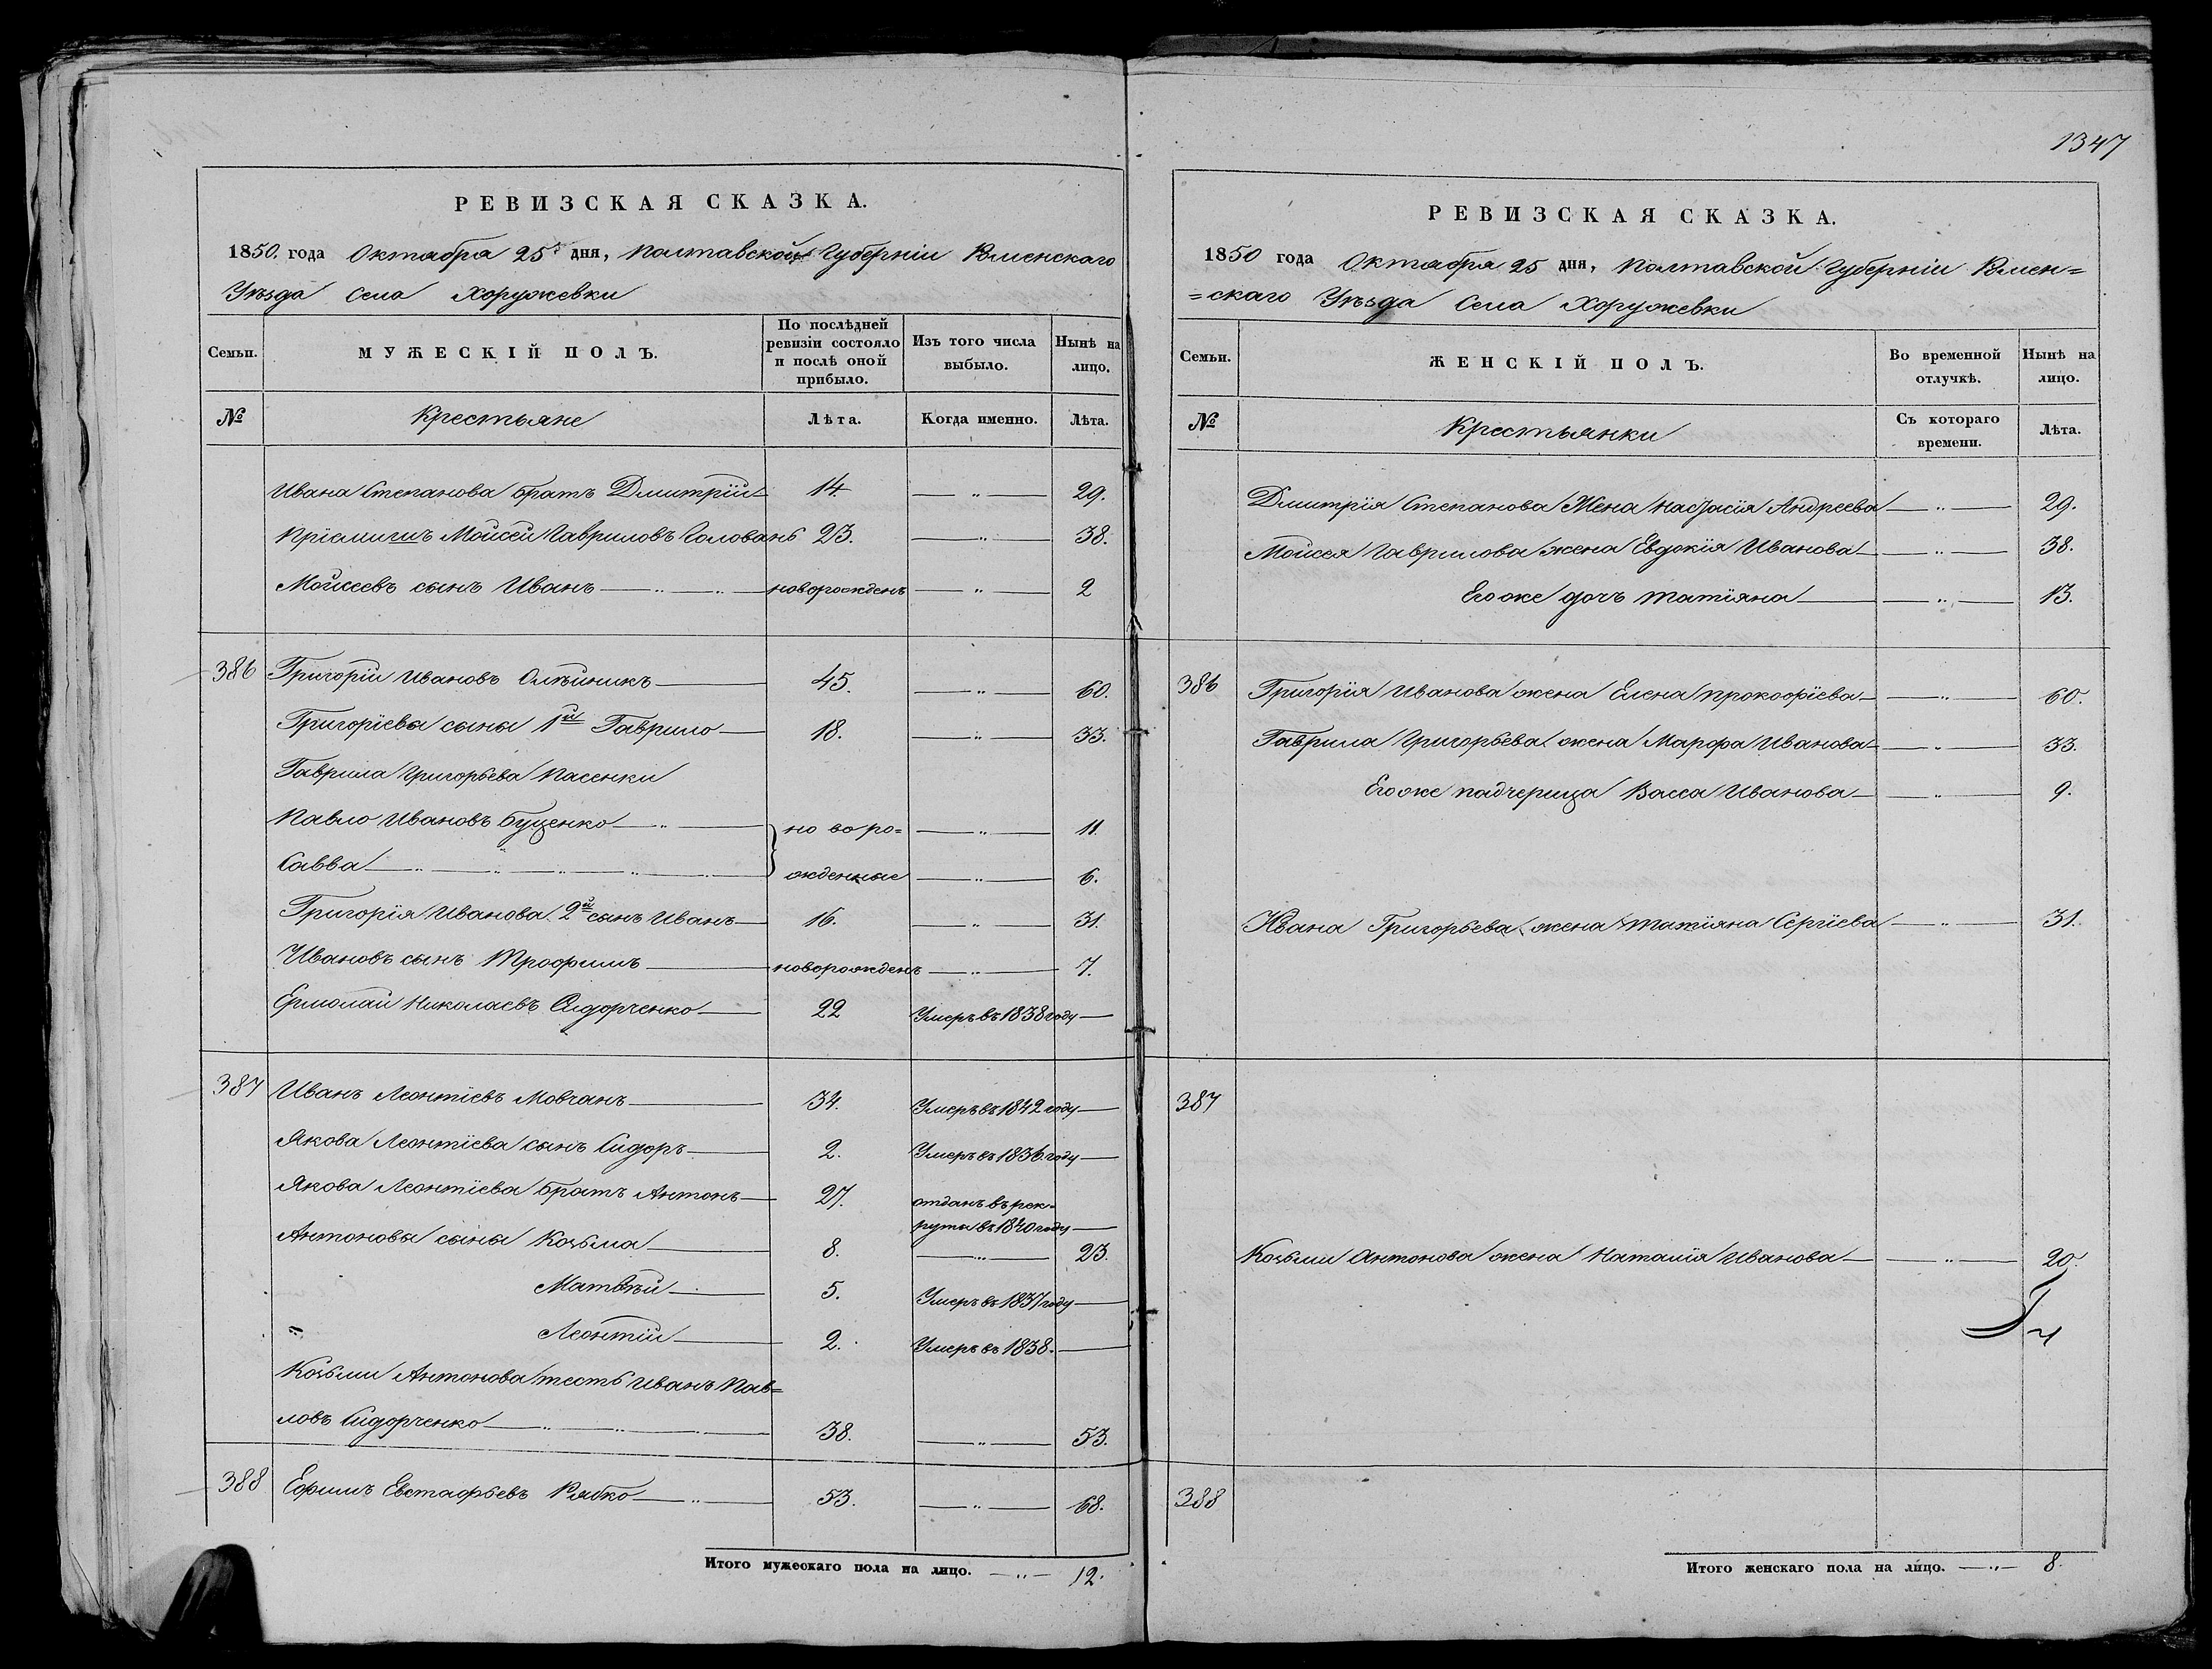 РЕВИЗСКАЯ СКАЗКА.
1850. года Октября 25 дня, Полтавской Губерніи Роменскаго
Уѣзда Села Хоружевки
Семьи. МУЖЕСКІЙ ПОЛЪ. По послѣдней ревизіи состояло и послѣ оной прибыло. Изъ того числа выбыло. Нынѣ на лицо.
№ Крестьяне Лѣта. Когда именно. Лѣта.
Ивана Степанова братъ Дмитрій 14 — „ — 29.
Пріемишъ Мойсей Гавриловъ Головань 23. — „ — 38.
Мойсеевъ сынъ Иванъ — „ — новорожденъ — „ — 2
386 Григорій Ивановъ Олѣйникъ 45. — „ — 60.
Григоріевы сыны 1й Гаврило 18. — „ — 33.
Гаврила Григорьева Пасенки
Павло Ивановъ Буценко — „ — новоро= — „ — 11.
Савва — „ — „ — „ — „ — жденные — „ — 6.
Григорія Иванова 2й сынъ Иванъ 16. — „ — 31.
Ивановъ сынъ Трофимъ новорожденъ — „ — 7.
Ермолай Николаевъ Сидорченко 22 Умеръ въ 1838 году —
387 Иванъ Леонтіевъ Мовчанъ 34. Умеръ въ 1842 году —
Якова Леонтіева сынъ Сидоръ 2. Умеръ въ 1836. году —
Якова Леонтіева братъ Антонъ 27. отданъ въ рек-
руты въ 1840 году —
Антоновы сыны Козьма 8. — „ — 23.
Матвѣй 5. Умеръ въ 1837 году —
„ Леонтій 2. Умеръ въ 1838. —
Козьми Антонова тесть Иванъ Пав=
ловъ Сидорченко — „ — „ — 38. — „ — 53.
388 Ефимъ Евстафьевъ Рябко — „ — 53. — „ — 68.
Итого мужескаго пола на лицо. — „ — 12.
1347
РЕВИЗСКАЯ СКАЗКА.
1850 года Октября 25 дня, Полтавской Губерніи Ромен=
=скаго Уѣзда Села Хоружевки
Семьи. ЖЕНСКІЙ ПОЛЪ. Во временной отлучкѣ. Нынѣ на лицо.
№ Крестьянки Съ котораго времени. Лѣта.
Дмитрія Степанова Жена Настасія Андреева — „ — 29.
Мойсея Гаврилова жена Евдокія Иванова — „ — 38.
Его же дочь Татіяна — „ — 13.
386 Григорія Иванова жена Елена Прокофіева — „ — 60.
Гаврила Григорьева жена Марфа Иванова — „ — 33.
Его же падчерица Васса Иванова — „ — 9.
Ивана Григорьева жена Татіяна Сергіева — „ — 31.
387
Козьми Антонова жена Наталія Иванова — „ — 20.
388
Итого женскаго пола на лицо. — „ — 8.